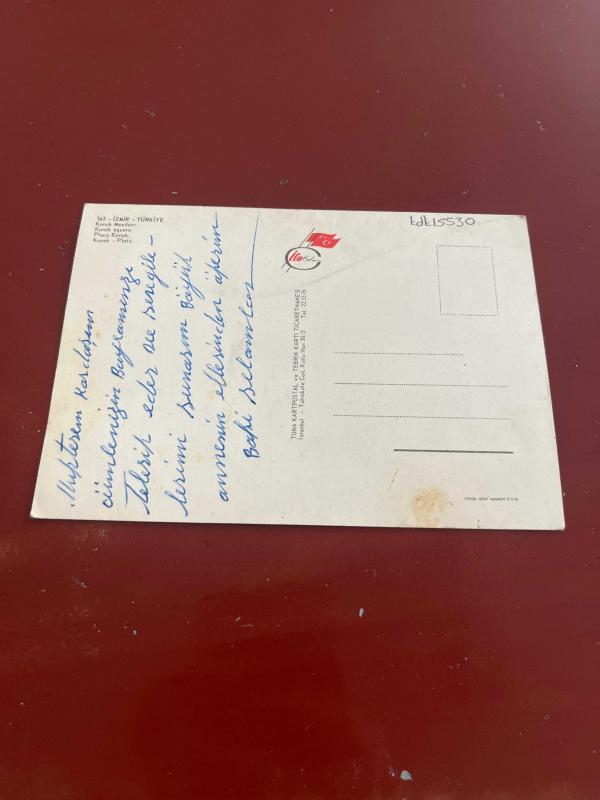 163 - İZMİR - TÜRKİYE
Konak Meydanı.
Konak square.
Place Konak.
Konak - Platz.
Muhterem Kardaşım
cümlenizin Bayramınızı
Tebrik eder ve
lerimi sunarım Büyük
annenin ellerinden öperim
Baki selamlar
TUNA KARTPOSTAL ve TEBRİK KARTI TİCARETHANESİ
İstanbul - Tahtakale Cad. Kutlu Han 30/2
kdk15530